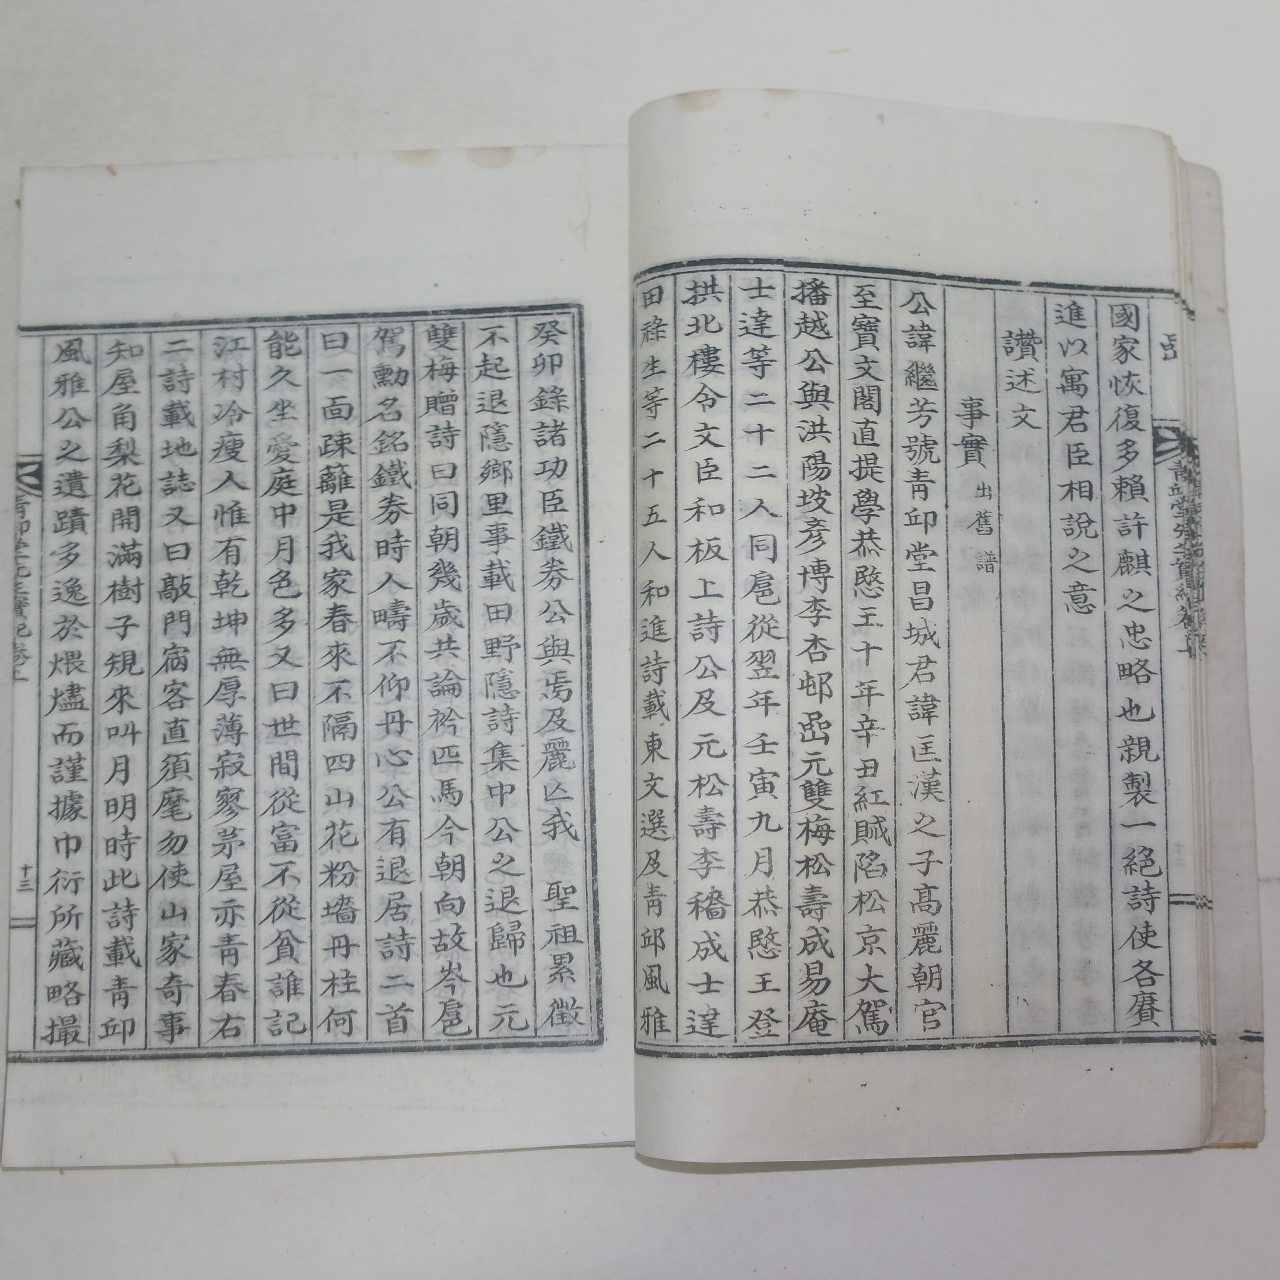 國家恢復多賴許麒之忠略也親製一絶詩使各賡
進以寓君臣相説之意
讚述文
事實 出舊譜
公諱繼芳號靑邱堂昌城君諱匡漢之子髙麗朝官
至寶文閣直提學恭愍王十年辛丑紅賊陷松京大駕
播越公與洪陽坡彦博李杏邨嵒元雙梅松壽成易庵
士達等二十二人同扈從翌年壬寅九月恭愍王登
拱北樓令文臣和板上詩公及元松壽李穡成士達
田祿生等二十五人和進詩載東文選及靑邱風雅
癸卯錄諸功臣鐵券公與焉及麗亡我 聖祖累徵
不起退隱鄉里事載田野隱詩集中公之退歸也元
雙梅贈詩曰同朝幾歲共論衿匹馬今朝向故岑扈
駕勳名銘鐵券時人疇不仰丹心公有退居詩二首
曰一面疎籬是我家春來不隔四山花粉墻丹柱何
能久坐愛庭中月色多又曰世間從富不從貧誰記
江村冷瘦人惟有乾坤無厚薄寂寥茅屋亦靑春右
二詩載地誌又曰敲門宿客直須麾勿使山家奇事
知屋角梨花開滿樹子規來叫月明時此詩載靑邱
風雅公之遺蹟多逸於煨燼而謹據巾衍所藏略撮
十三